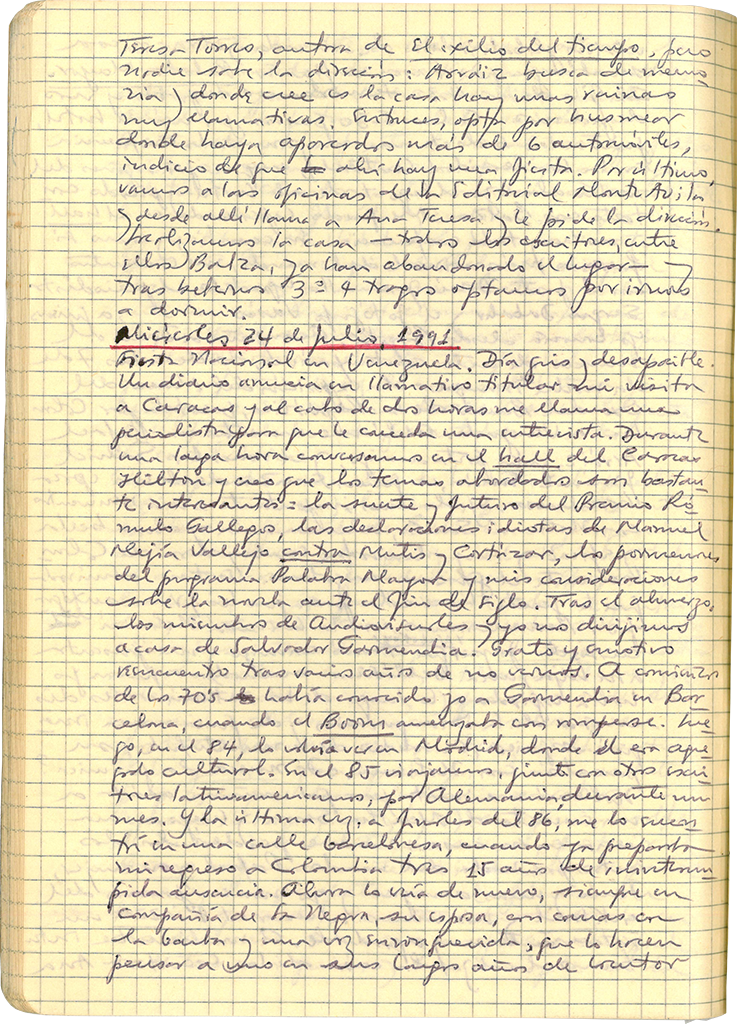 Teresa Torres, autora de El exilio del tiempo, pero
nadie sabe la dirección: Arráiz busca de memo-
ria y donde cree es la casa hay unas ruinas
muy llamativas. Entonces, opta por husmear
donde haya aparcados más de 6 automóviles,
indicio de que ahí hay una fiesta. Por último,
vamos a las oficinas de la Editorial Monte Avila
y desde allí llama a Ana Teresa y le pide la dirección.
Localizamos la casa — todos los escritores, entre
ellos Balza, ya han abandonado el lugar — y
tras bebernos 3 ó 4 tragos optamos por irnos
a dormir.
Miércoles 24 de Julio, 1991
Fiesta Nacional en Venezuela. Día gris y desapacible.
Un diario anuncia en llamativo titular mi visita
a Caracas y al cabo de dos horas me llama una
periodista para que le conceda una entrevista. Durante
una larga hora conversamos en el hall del Caracas
Hilton y creo que los temas abordados son bastan-
te interesantes: la suerte y futuro del Premio Ró-
mulo Gallegos, las declaraciones idiotas de Manuel
Mejía Vallejo contra Mutis y Cortázar, los pormenores
del programa Palabra Mayor y mis consideraciones
sobre la novela ante el Fin de Siglo. Tras el almuerzo,
los miembros de Audiovisuales y yo nos dirigimos
a casa de Salvador Garmendia. Grato y emotivo
reencuentro tras varios años de no vernos. A comienzos
de los 70's había conocido yo a Garmendia en Bar-
celona, cuando el Boom amenazaba con romperse. Lue-
go, en el 84, lo volví a ver en Madrid, donde él era agre-
gado cultural. En el 85 viajamos, junto con otros escri-
tores latinoamericanos, por Alemania, durante un
mes. Y la última vez, a finales del 86, me lo encon-
tré en una calle barcelonesa, cuando ya preparaba
mi regreso a Colombia tras 15 años de ininterrum-
pida ausencia. Ahora lo veía de nuevo, siempre en
compañía de la Negra, su esposa, con canas en
la barba y una voz enronquecida, que lo hacen
pensar a uno en sus largos años de locutor